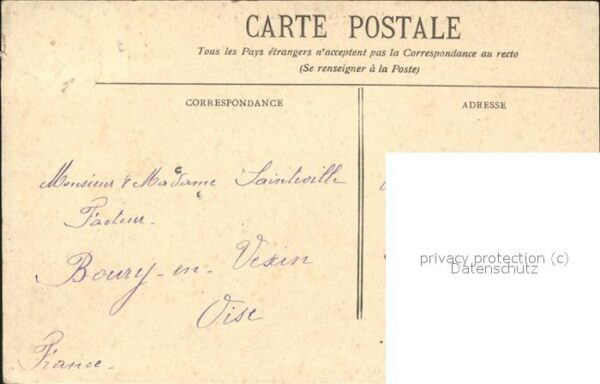 CARTE POSTALE
Tous les Pays étrangers n'acceptent pas la Correspondance au recto
(Se renseigner à la Poste)
CORRESPONDANCE
ADRESSE
Monsieur & Madame Sainteville
Facteur.
Boury-en-Vexin
Oise
France.
privacy protection (c)
Datenschutz